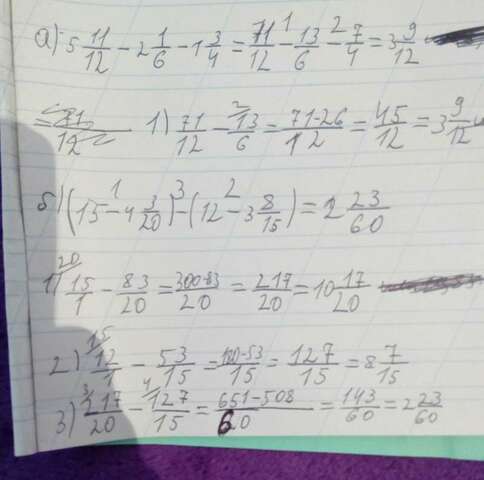 а) 5 11/12 − 2 1/6 − 1 3/4 = 71/12 − 13/6 − 7/4 = 3 9/12
1) 71/12 − 13/6 = 71-26/12 = 45/12 = 3 9/12
б) (15 − 4 3/20) − (12 − 3 8/15) = 2 23/60
1) 15/1 − 83/20 = 300-83/20 = 217/20 = 10 17/20
2) 12/1 − 53/15 = 180-53/15 = 127/15 = 8 7/15
3) 217/20 − 127/15 = 651-508/60 = 143/60 = 2 23/60